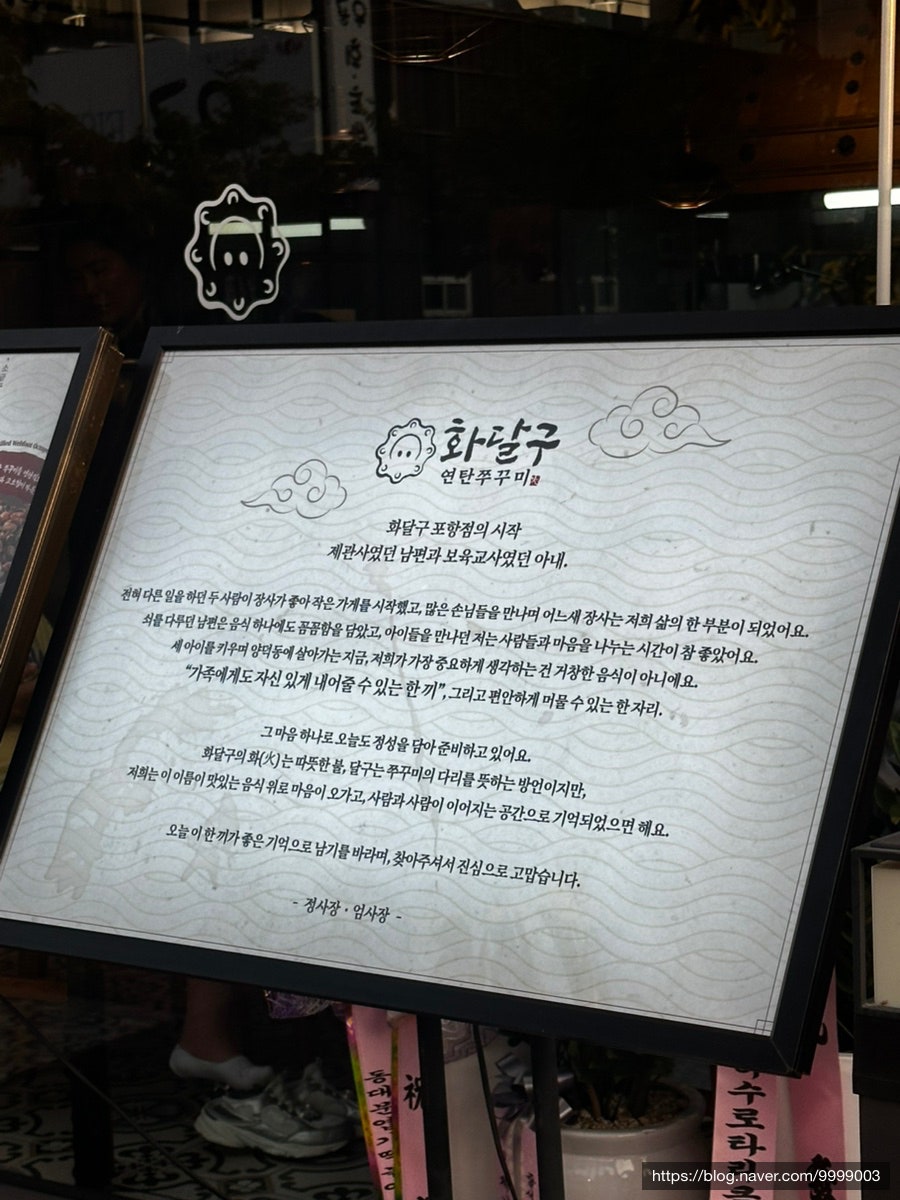 화달구
연탄쭈꾸미
화달구 포항점의 시작
제관사였던 남편과 보육교사였던 아내.
전혀 다른 일을 하던 두 사람이 장사가 좋아 작은 가게를 시작했고, 많은 손님들을 만나며 어느새 장사는 저희 삶의 한 부분이 되었어요.
쇠를 다루던 남편은 음식 하나에도 꼼꼼함을 담았고, 아이들을 만나던 저는 사람들과 마음을 나누는 시간이 참 좋았어요.
세 아이를 키우며 양덕동에 살아가는 지금, 저희가 가장 중요하게 생각하는 건 거창한 음식이 아니에요.
“가족에게도 자신 있게 내어줄 수 있는 한 끼”, 그리고 편안하게 머물 수 있는 한 자리.
그 마음 하나로 오늘도 정성을 담아 준비하고 있어요.
화달구의 화(火)는 따뜻한 불, 달구는 쭈꾸미의 다리를 뜻하는 방언이지만,
저희는 이 이름이 맛있는 음식 위로 마음이 오가고, 사람과 사람이 이어지는 공간으로 기억되었으면 해요.
오늘 이 한 끼가 좋은 기억으로 남기를 바라며, 찾아주셔서 진심으로 고맙습니다.
- 정사장 · 엄사장 -
祝
https://blog.naver.com/9999003